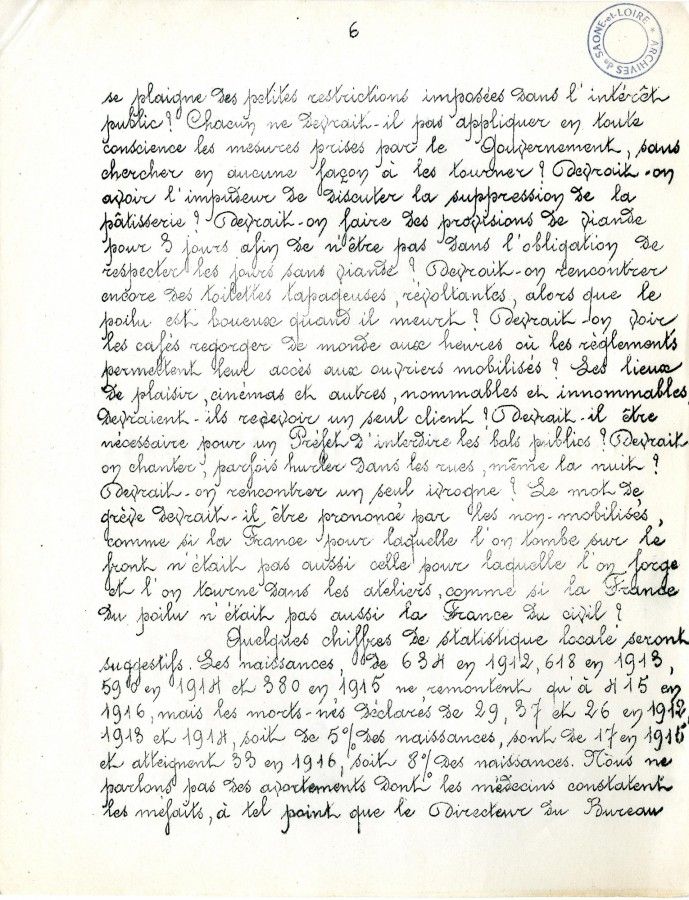 6
ARCHIVES de SAONE-et-LOIRE *
se plaigne des petites restrictions imposées dans l'intérêt
public ? Chacun ne devrait-il pas appliquer en toute
conscience les mesures prises par le Gouvernement, sans
chercher en aucune façon à les tourner ? Devrait-on
avoir l'impudeur de discuter la suppression de la
pâtisserie ? Devrait-on faire des provisions de viande
pour 3 jours afin de n'être pas dans l'obligation de
respecter les jours sans viande ? Devrait-on rencontrer
encore des toilettes tapageuses, révoltantes, alors que le
poilu est boueux quand il meurt ? Devrait-on voir
les cafés regorger de monde aux heures où les règlements
permettent leur accès aux ouvriers mobilisés ? Les lieux
de plaisir, cinémas et autres, nommables et innommables,
devraient-ils recevoir un seul client ? Devrait-il être
nécessaire pour un Préfet d'interdire les bals publics ? Devrait
on chanter, parfois hurler dans les rues, même la nuit ?
Devrait-on rencontrer un seul ivrogne ? Le mot de
grève devrait-il être prononcé par les non-mobilisés,
comme si la France pour laquelle l'on tombe sur le
front n'était pas aussi celle pour laquelle l'on forge
et l'on tourne dans les ateliers, comme si la France
du poilu n'était pas aussi la France du civil ?
Quelques chiffres de statistique locale seront
suggestifs. Les naissances, de 634 en 1912, 618 en 1913,
590 en 1914 et 380 en 1915 ne remontent qu'à 415 en
1916, mais les morts-nés déclarés de 29, 37 et 26 en 1912,
1913 et 1914, soit de 5% des naissances, sont de 17 en 1915
et atteignent 33 en 1916, soit 8% des naissances. Nous ne
parlons pas des avortements dont les médecins constatent
les méfaits, à tel point que le Directeur du Bureau